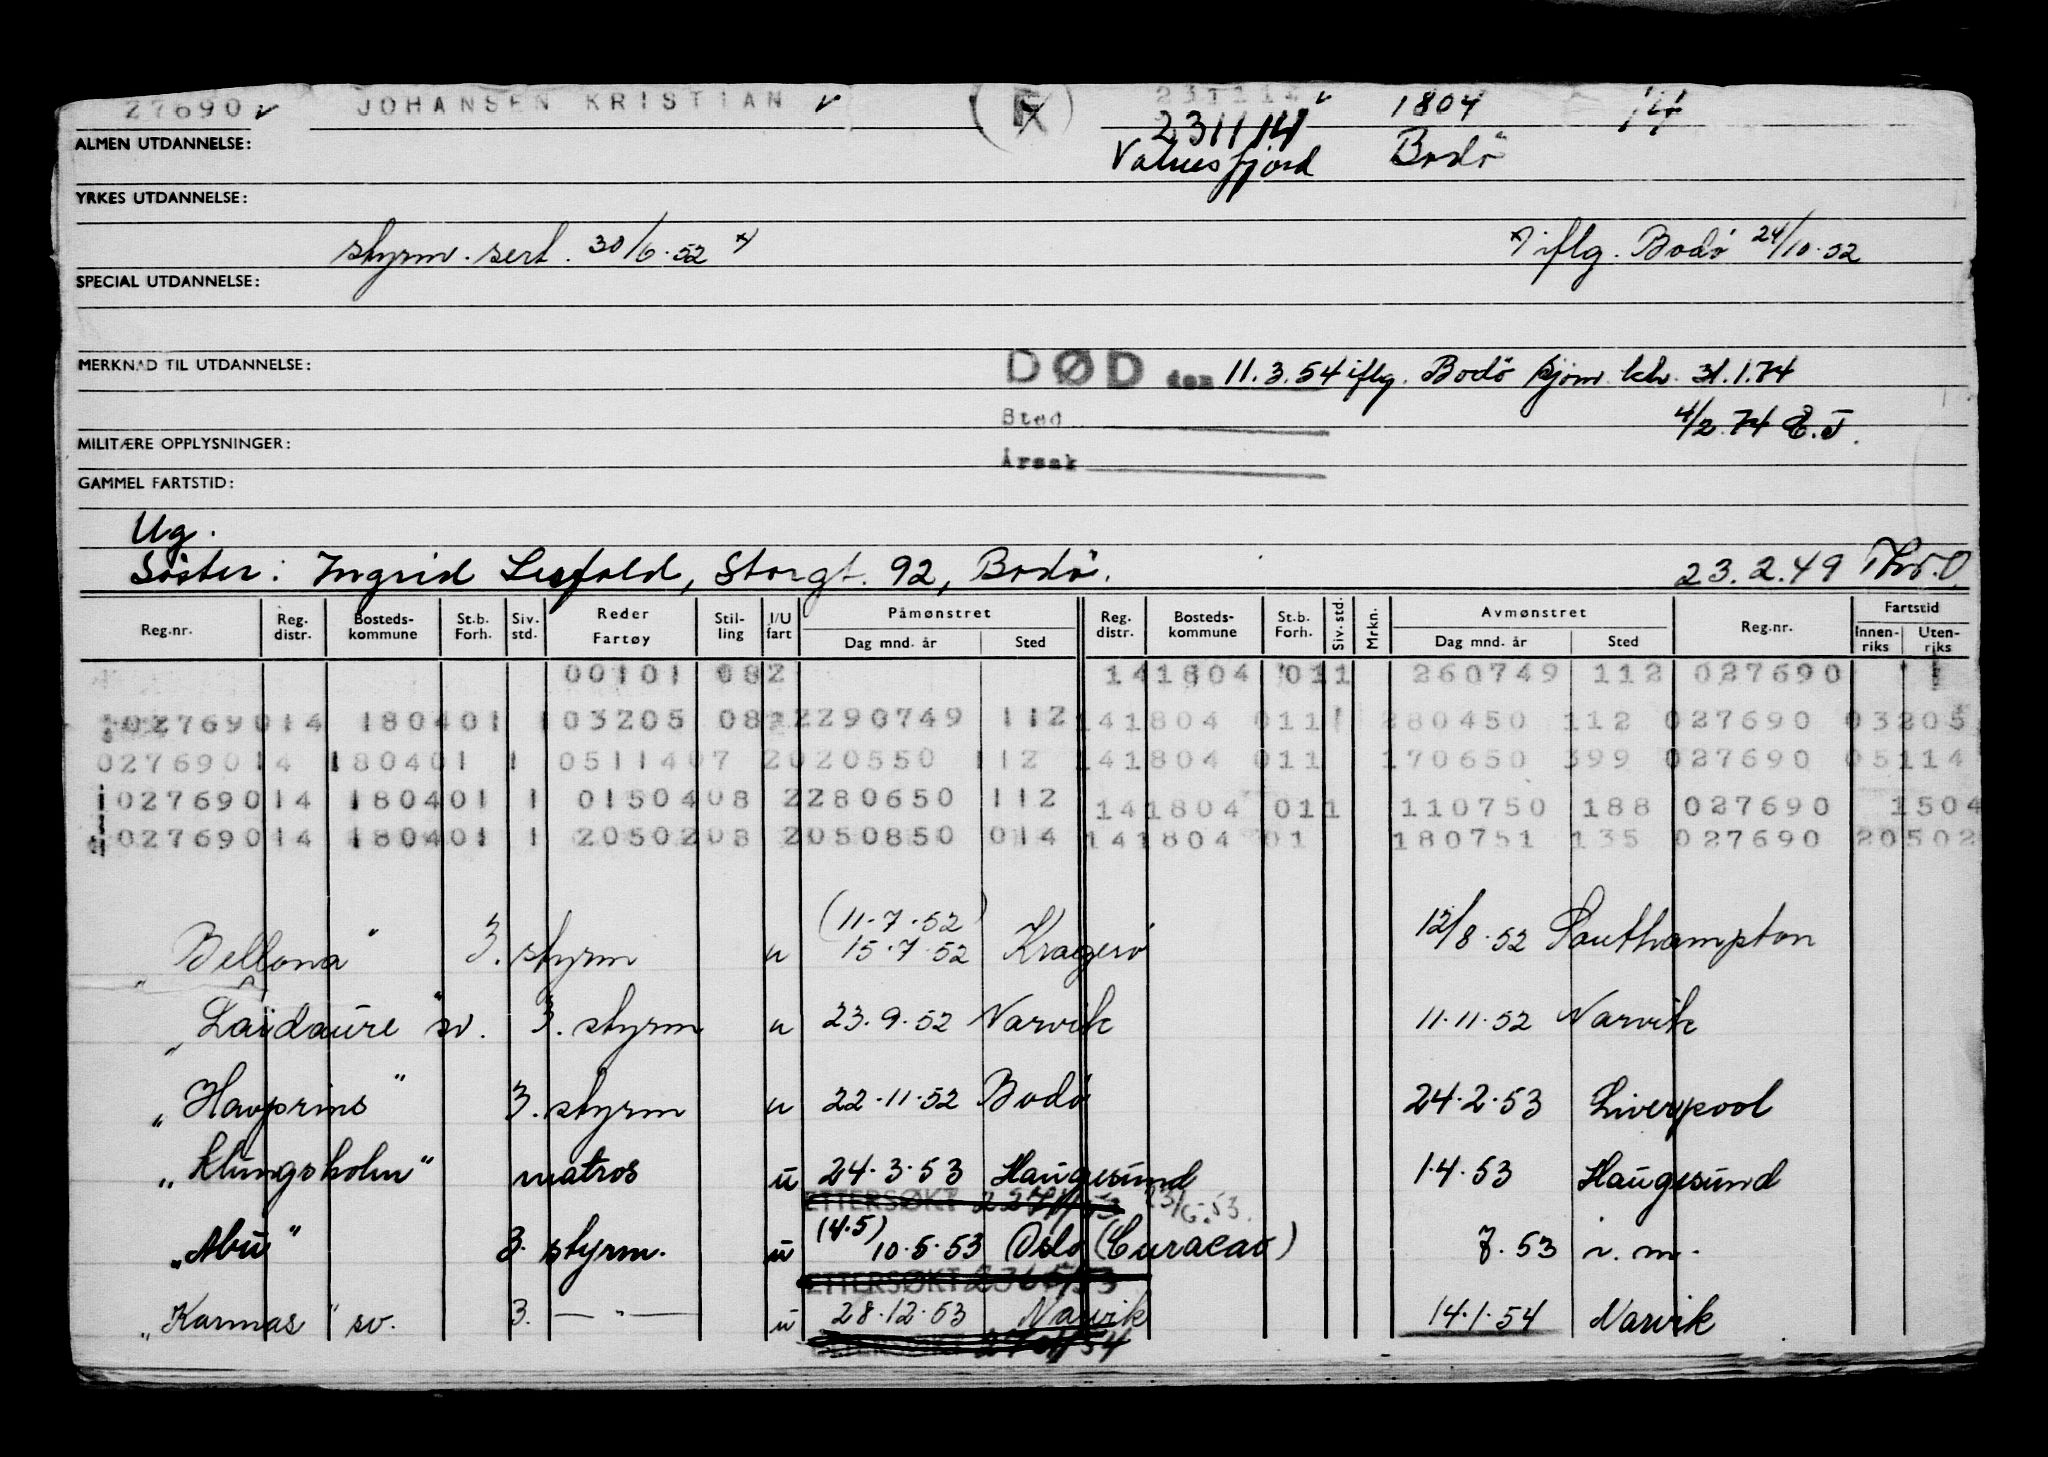 27690 JOHANSEN KRISTIAN 231114 1804 14
231114
ALMEN UTDANNELSE: Valnesfjord Bodö
YRKES UTDANNELSE:
styrm. sert. 30/6.52 x) x) iflg. Bodö 24/10.52
SPECIAL UTDANNELSE:
MERKNAD TIL UTDANNELSE: DØD den 11.3.54 iflg. Bodö sjøm. ktr. 31.1.74
Sted 4/2.74 E.J.
MILITÆRE OPPLYSNINGER:
Årsak
GAMMEL FARTSTID:
Ug.
Söster: Ingrid Storgt. 92, Bodö. 23.2.49
Reg.nr. Reg. distr. Bosteds-kommune St.b. Forh. Siv. std. Reder Fartøy Stil-ling I/U fart Påmønstret Dag mnd. år Sted Reg. distr. Bosteds-kommune St.b. Forh. Siv. std. Mrkn. Avmønstret Dag mnd. år Sted Reg.nr. Fartstid Innen-riks Uten-riks
00101 082 141804 011 260749 112 027690 1
02769014 180401 1 03205 082 2290749 112 141804 011 280450 112 027690 03205
02769014 180401 1 0511407 2020550 112 141804 011 170650 399 027690 05114
02769014 180401 1 0150408 2280650 112 141804 011 110750 188 027690 1504
02769014 180401 1 2050208 2050850 014 141804 01 180751 135 027690 20502
(11.7.52)
"Bellona" 3. styrm u 15.7.52 Kragerö 12/8.52 Southampton
"Laidaure" sv. 3. styrm u 23.9.52 Narvik 11.11.52 Narvik
"Havprins" 3. styrm u 22.11.52 Bodö 24.2.53 Liverpool
"Klungsholm" matros u 24.3.53 Haugesund 1.4.53 Haugesund
ETTERSØKT 23/6.53.
(4.5)
"Abu" 3. styrm. u 10.5.53 Oslo (Curacao) 7.53 i. m.
ETTERSØKT
"Karmas" sv. 3. — " — u 28.12.53 Narvik 14.1.54 Narvik
ETTERSØKT